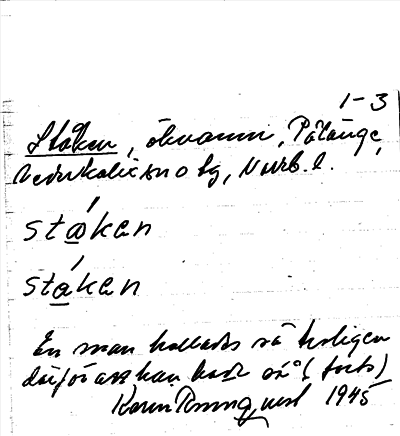 1-3
Ståken, ökvamn, Pålänge,
Nederkalix sn o tg, Norrb. l.
ståkan
ståkan
En man kallades så troligen
därför att han hade så (forts)
Karin Rönnqvist 1945